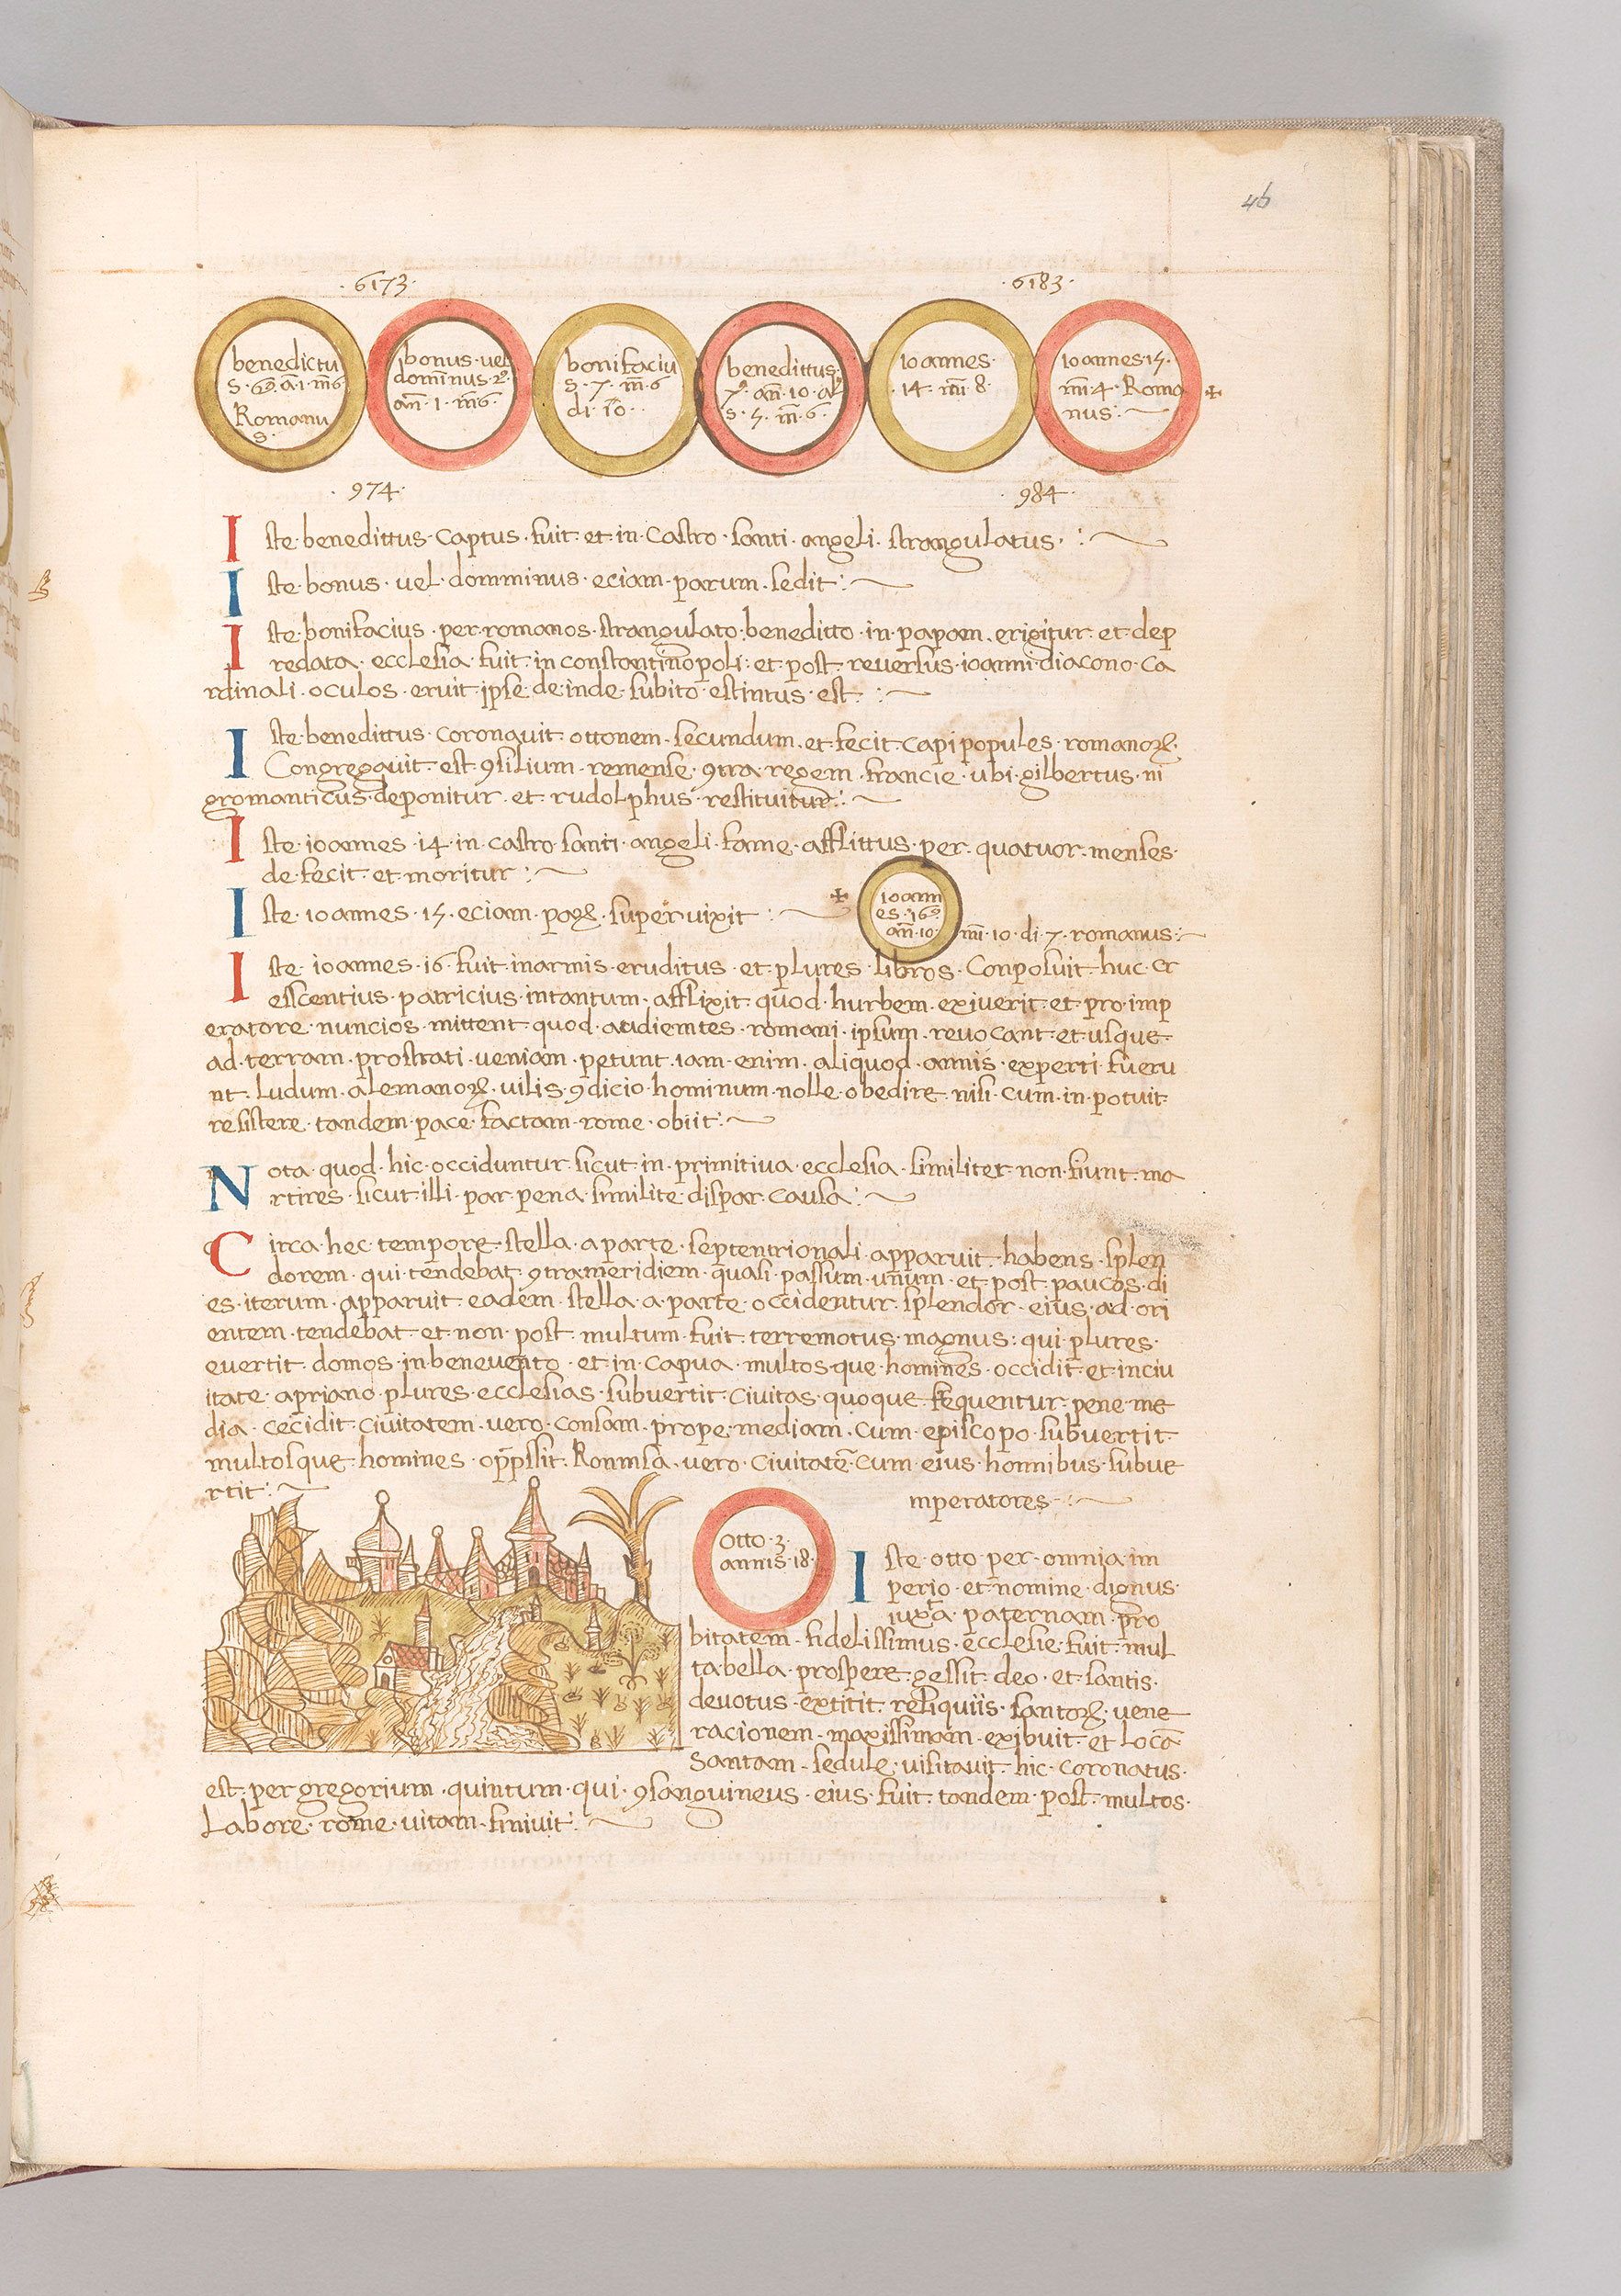 46
·6173·
·6183·
benedictu
s·6·ā·1·m̄6
Romanu
s·
bonus·vel
dominus·2º·
añ·1·m̄6·
bonifaciu
s·7·m̄·6
di·10··
benedittus·
7º·añ·10·al'
s·5·m̄·6·
ioannes·
·14·m̄·8·
ioannes·15·
m̄·4·Roma
nus:
·974·
·984·
Iste·benedittus·captus·fuit·et·in·castro·santi·angeli·strangulatus·:
Iste·bonus·vel·domminus·eciam·parum·sedit:
Iste·bonifacius·per·romanos·strangulato·beneditto·in·papam·erigitur·et·dep
redata·ecclesia·fuit·in constantinopoli:et·post·reversus·ioanni·diacono·ca
rdinali·oculos·eruit ipse·de inde·subito·estintus·est:
Iste·benedittus·coronavit·ottonem·secundum·et·fecit·capi popules·romanoꝝ·
Congregavit·est·ꝯsilium·remense·ꝯtra·regem·francie·ubi·gilbertus·ni
gromanticus·deponitur·et·rudolphus·restituitur:
Iste·ioannes·14·in·castro·santi·angeli·fame·afflittus·per·quatuor·menses·
de·fecit·et·moritur:
Iste·ioannes·15·eciam·paꝝ·supervixit:
ioann
es·16º
añ·10·
m̄·10·di·7·romanus:
Iste·ioannes·16·fuit·inarmis·eruditus·et·plures·libros·Conposuit·huc·cr
escentius·patricius·intantum·afflixit·quod·hurbem·exiverit·et·pro·imp
eratore·nuncios·mittent·quod·audiemtes·romani·ipsum·revocant·et·usque·
ad·terram·prostrati·veniam·petunt·iam·enim·aliquod·annis·experti·fueru
nt·Ludum·alemanoꝝ·vilis·ꝯdicio·hominum·nolle·obedire·nisi·cum·in·potuit·
resistere·tandem·pace·factam·rome·obiit:
Nota·quod·hic·occiduntur·sicut·in·primitiva·ecclesia·similiter·non·fiunt·ma
rtires·sicut·illi·par·pena·similite·dispar·causa:
Circa·hec·tempore·stella·aparte·septentrionali·apparuit·habens·splen
dorem·qui·tendebat·ꝯtrameridiem·quasi·passum·unum·et·post·paucos·di
es·iterum·apparuit·eadem·stella·a·parte·occidentur·splendor·eius·ad·ori
entem·tendebat·et·non·post·multum·fuit·terremotus·magnus:qui·plures·
evertit·domos·in·benevento·et·in·capua·multos·que·homines·occidit·et·inciu
itate·apriano·plures·ecclesias·subvertit·civitas·quoque·frequentur·pene·me
dia·cecidit·civitatem·vero·consam·prope·mediam·cum·episcopo·subvertit·
multosque·homines·opp̄ssit·Ronnisa·vero·civitatē·cum·eius·homnibus·subve
rtit:
mperatores·:
otto·3·
annis·18·
Iste·otto·per·omnia·im
perio·et·nomine·dignus·
iuxta·paternam·pro
bitatem·fidelissimus·ecclesie·fuit·mul
tabella·prospere·gessit·deo·et·santis·
devotus·extitit·reliquiis·santoꝝ·vene
racionem·maxissimam·exibuit·et·Loca
Santam·sedule·visitavit·hic·coronatus·
est·per gregorium·quintum·qui·ꝯsanguineus·eius·fuit·tandem·post·multos·
Labore·rome·vitam·finivit: